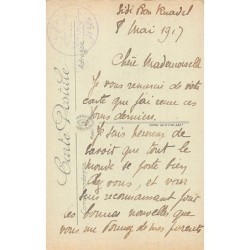 Sidi Bou Knadel
8 Mai 1917
Chère Mademoiselle
Je vous remercie de votre
carte que j'ai reçue ces
jours derniers.
Je suis heureux de
savoir que tout le
monde se porte bien
chez vous, et vous
suis reconnaissant pour
les bonnes nouvelles que
vous me donnez de mes parents
Carte Postale